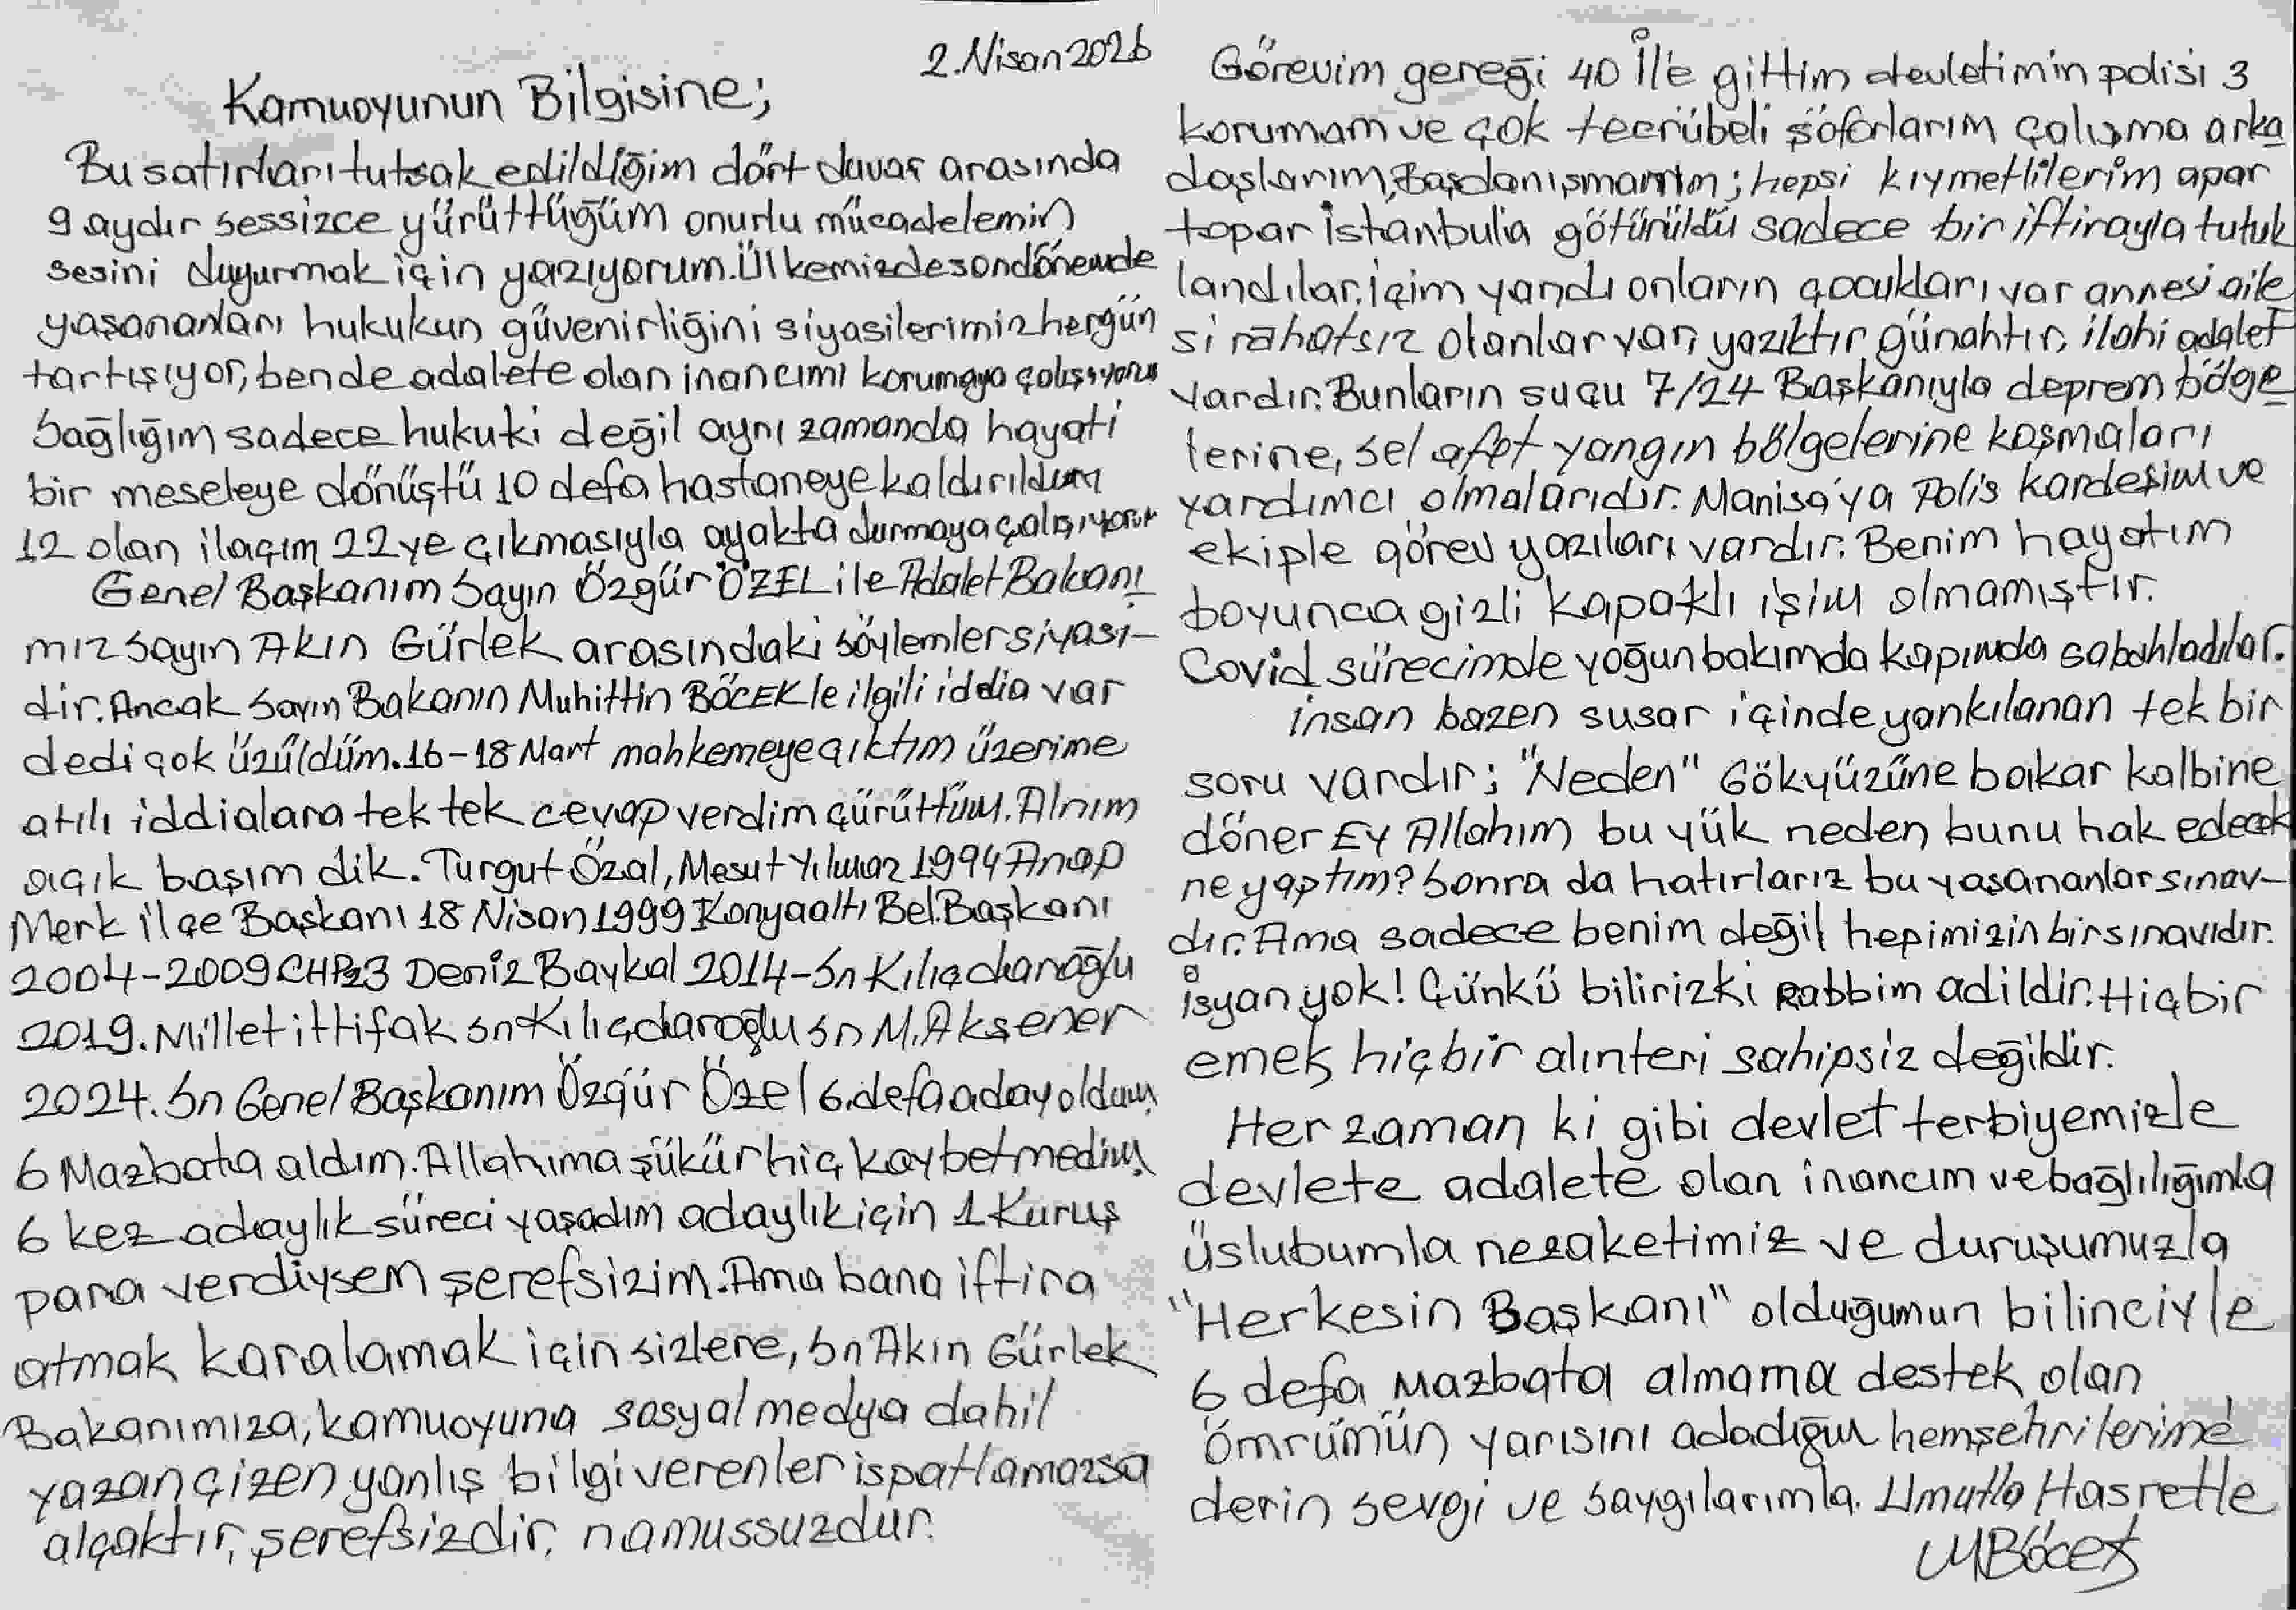 2.Nisan 2026
Kamuoyunun Bilgisine;
Bu satırları tutsak edildiğim dört duvar arasında
9 aydır sessizce yürüttüğüm onurlu mücadelemin
sesini duyurmak için yazıyorum. Ülkemizde son dönemde
yaşananları hukukun güvenirliğini siyasilerimiz hergün
tartışıyor, bende adalete olan inancımı korumaya çalışıyorum
Sağlığım sadece hukuki değil aynı zamanda hayati
bir meseleye dönüştü 10 defa hastaneye kaldırıldım
12 olan ilaçım 22 ye çıkmasıyla ayakta durmaya çalışıyorum
Genel Başkanım Sayın Özgür ÖZEL ile Adalet Bakanı
mız Sayın Akın Gürlek arasındaki söylemler siyasi-
dir. Ancak Sayın Bakanın Muhittin BÖCEK le ilgili iddia var
dedi çok üzüldüm. 16-18 Mart mahkemeye çıktım üzerime
atılı iddialara tek tek cevap verdim çürüttüm. Alnım
açık başım dik. Turgut Özal, Mesut Yılmaz 1994 Anap
Merk ilçe Başkanı 18 Nisan 1999 Konyaaltı Bel. Başkanı
2004-2009 CHP Deniz Baykal 2014-Sn Kılıçdaroğlu
2019. Millet ittifak Sn Kılıçdaroğlu Sn M. Akşener
2024. Sn Genel Başkanım Özgür Özel 6. defa aday oldum
6 Mazbata aldım. Allahıma şükür hiç kaybetmedim
6 kez adaylık süreci yaşadım adaylık için 1 Kuruş
para verdiysem şerefsizim. Ama bana iftira
atmak karalamak için sizlere, Sn Akın Gürlek
Bakanımıza, kamuoyuna sosyal medya dahil
yazan çizen yanlış bilgi verenler ispatlamazsa
alçaktır, şerefsizdir, namussuzdur.
Görevim gereği 40 İl'e gittim devletimin polisi 3
korumam ve çok tecrübeli şöforlarım çalışma arka
daşlarım, Başdanışmanım; hepsi kıymetlilerim apar
topar İstanbula götürüldü sadece bir iftirayla tutuk
landılar, içim yandı onların çocukları var annesi aile
si rahatsız olanlar var, yazıktır, günahtır, ilahi adalet
vardır. Bunların suçu 7/24 Başkanıyla deprem bölge
lerine, sel afet yangın bölgelerine koşmaları
yardımcı olmalarıdır. Manisa'ya Polis kardeşim ve
ekiple görev yazıları vardır. Benim hayatım
boyunca gizli kapaklı işim olmamıştır.
Covid sürecimde yoğun bakımda kapımda sabahladılar.
İnsan bazen susar içinde yankılanan tek bir
soru vardır; "Neden" Gökyüzüne bakar kalbine
döner Ey Allahım bu yük neden bunu hak edecek
ne yaptım? Sonra da hatırlarız bu yaşananlar sınav-
dır. Ama sadece benim değil hepimizin bir sınavıdır.
isyan yok! Çünkü bilirizki Rabbim adildir. Hiçbir
emek hiçbir alınteri sahipsiz değildir.
Her zaman ki gibi devlet terbiyemizle
devlete adalete olan inancım ve bağlılığımla
üslubumla nezaketimiz ve duruşumuzla
"Herkesin Başkanı" olduğumun bilinciyle
6 defa Mazbata almama destek olan
ömrümün yarısını adadığım hemşehrilerime
derin sevgi ve saygılarımla. Umutla Hasretle
MBöcek